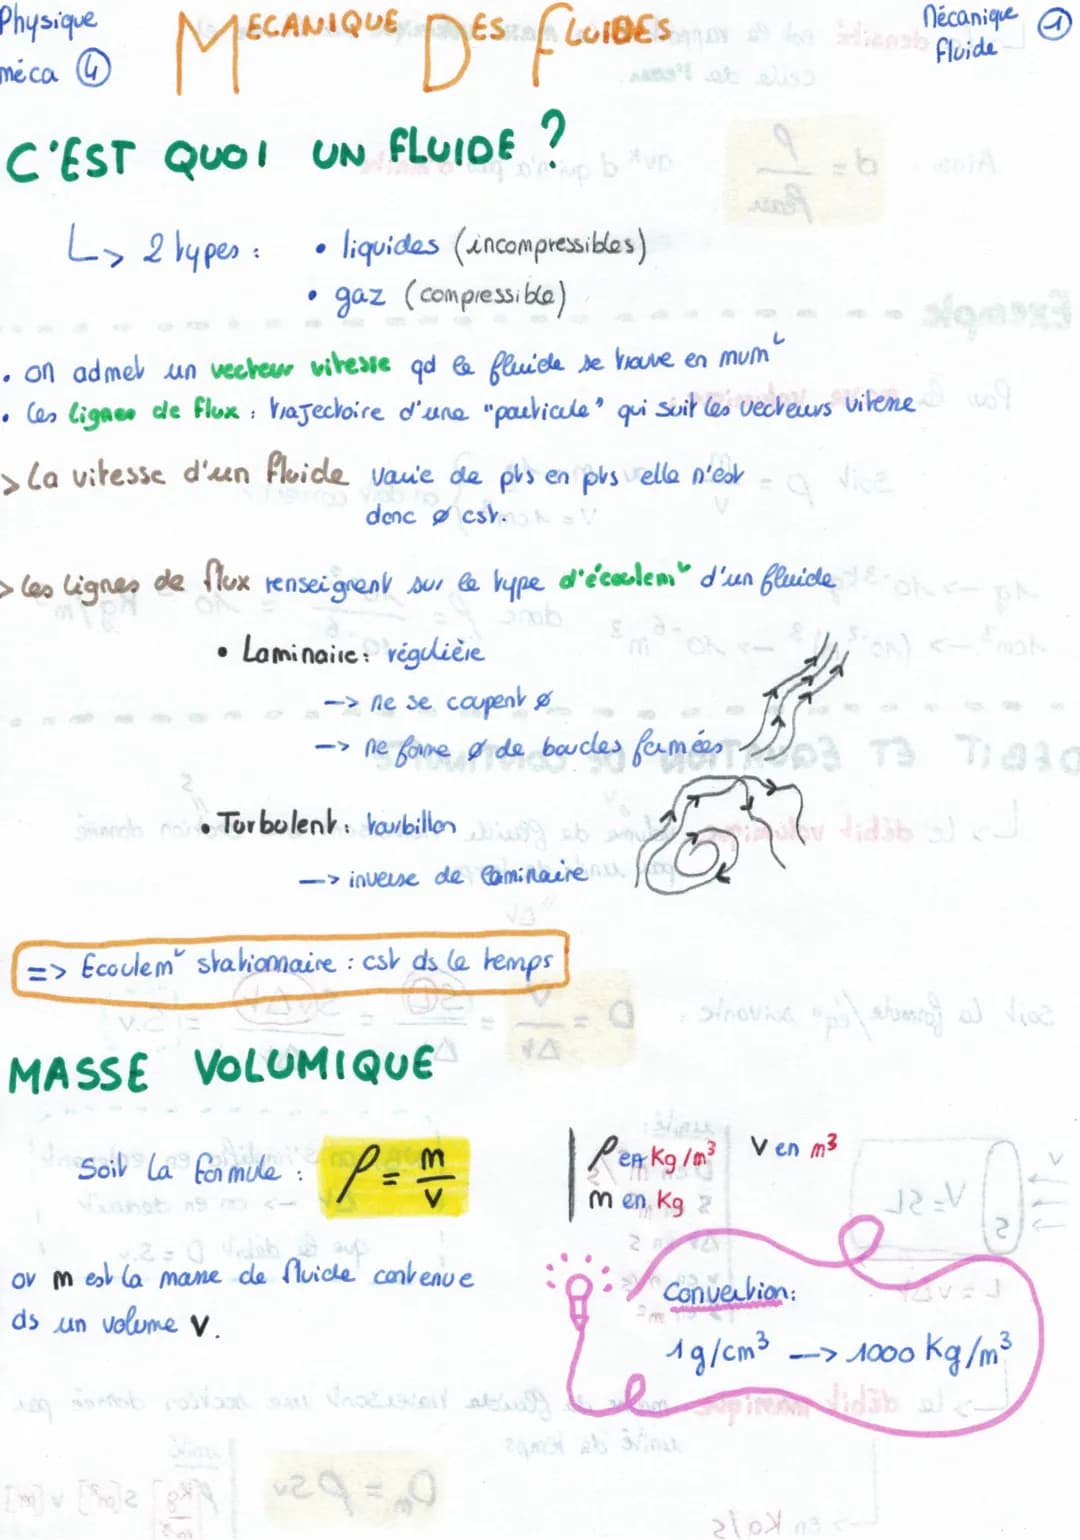 Physique
méca 4
MECANIQUE DES FLUIDES
Mécanique
fluide 1
C'EST QUOI UN FLUIDE ?
↳ 2 types : • liquides (incompressibles)
• gaz (compressible)
• on admet un vecteur vitesse qd le fluide se trouve en mvmᵗ
• les lignes de flux : trajectoire d'une "particule" qui suit les vecteurs vitesse
> La vitesse d'un fluide varie de pts en pts elle n'est
donc ø cst.
> les lignes de flux renseignent sur le type d'écoulemᵗ d'un fluide
• Laminaire : régulière
--> ne se coupent ø
--> ne forme ø de boucles fermées
• Turbulent : tourbillon
--> inverse de laminaire
=> Ecoulemᵗ stationnaire : cst ds le temps
MASSE VOLUMIQUE
Soit la formule : ρ = m/v
ρ en Kg/m³ V en m³
m en Kg
or m est la masse de fluide contenue
ds un volume V.
Convertion :
1g/cm³ --> 1000 Kg/m³